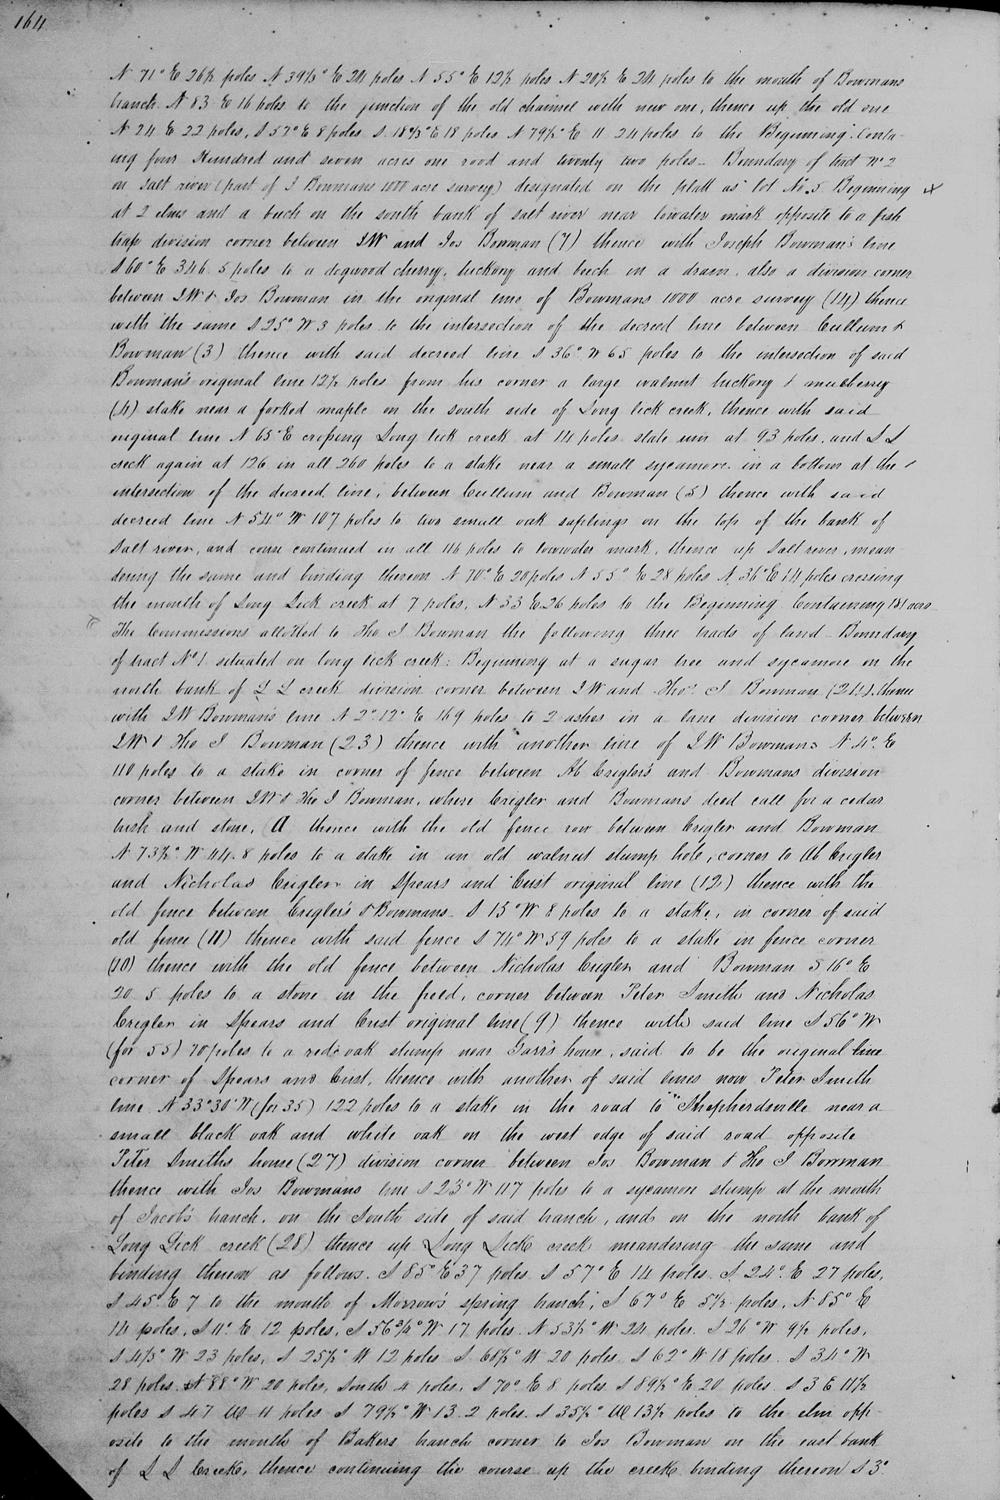 164
N 71° E 26½ poles N 39½° E 24 poles N 55° E 12½ poles N 20½ E 24 poles to the mouth of Bowmans
branch. N 83 E 16 poles to the junction of the old channel with new one, thence up the old one
N 24 E 22 poles, S 57° E 8 poles S 18½° E 18 poles N 79½° E 11 24 poles to the Beginning. Conta-
ing four Hundred and seven acres one rood and twenty two poles - Boundary of tract No 2
on Salt river (part of J Bowmans 1000 acre survey) designated on the platt as lot No. 5 Beginning
at 2 elms and a beech on the south bank of salt river near lowwater mark opposite to a fish
trap division corner between JW and Jos Bowman (7) thence with Joseph Bowman's line
S 60° E 346.5 poles to a dogwood cherry, hickory and beech in a drain. also a division corner
between JW & Jos Bowman in the original line of Bowmans 1000 acre survey (14) thence
with the same S 25° W 3 poles to the intersection of the decreed line between Cullum &
Bowman (3) thence with said decreed line S 36° W 65 poles to the intersection of said
Bowman's original line 12½ poles from his corner a large walnut hickory & mulberry
(4) stake near a forked maple on the south side of Long lick creek, thence with said
original line N 65° E crossing Long lick creek at 14 poles state at 93 poles, and L L
creek again at 126 in all 260 poles to a stake near a small sycamore in a bottom at the
intersection of the decreed line, between Cullum and Bowman (5) thence with said
decreed line N 54° W 107 poles to two small oak saplings on the top of the bank of
Salt river, and course continued in all 116 poles to lowwater mark, thence up Salt river, mean
dering the same and binding thereon N 70° E 20 poles N 55° E 28 poles N 36° E 14 poles crossing
the mouth of Long Lick creek at 7 poles, N 33 E 26 poles to the Beginning Containing 181 acres
The Commissions allotted to Tho. J Bowman the following three tracts of land - Boundary
of tract No 1. situated on long lick creek: Beginning at a sugar tree and sycamore on the
north bank of L L creek division corner between JW and Tho. J Bowman (21) thence
with JW Bowman's line N 2° 12' E 169 poles to 2 ashes in a lane division corner between
JW & Tho J Bowman (23) thence with another line of JW Bowmans N 4° E
110 poles to a stake in corner of fence between Ab Crigler's and Bowmans division
corner between JW & Tho J Bowman, where Crigler and Bowmans deed call for a cedar
bush and stone, A thence with the old fence row between Crigler and Bowman
N 73½° W 44.8 poles to a stake in an old walnut stump hole, corner to Ab Crigler
and Nicholas Crigler in Spears and Cust original line (12) thence with the
old fence between Crigler's & Bowmans - S 15° W 8 poles to a stake, in corner of said
old fence (11) thence with said fence S 74° W 59 poles to a stake in fence corner
(10) thence with the old fence between Nicholas Crigler and Bowman S 16° E
20 5 poles to a stone in the field, corner between Peter Smith and Nicholas
Crigler in Spears and Cust original line (9) thence with said line S 56° W
(for 55) 70 poles to a red oak stump near Garr's house, said to be the original line
corner of Spears and Cust, thence with another of said lines now Peter Smith
line N 33° 30' W (for 35) 122 poles to a stake in the road to Shepherdsville near a
small black oak and white oak on the west edge of said road opposite
Peter Smiths house (27) division corner between Jos Bowman & Tho J Bowman
thence with Jos Bowmans line S 23° W 117 poles to a sycamore stump at the mouth
of Jacob's branch, on the South side of said branch, and on the north bank of
Long Lick creek (28) thence up Long Lick creek meandering the same and
binding thereon as follows. S 85° E 37 poles S 57° E 14 poles. S 24° E 27 poles,
S 45° E 7 to the mouth of Morrow's spring branch, S 67° E 5½ poles, N 85° E
14 poles, S 11° E 12 poles, S 56¾° W 17 poles N 53½° W 24 poles. S 26° W 9½ poles,
S 4½° W 23 poles, S 25½° W 12 poles S 68½° W 20 poles S 62° W 18 poles. S 34° W
28 poles. N 88° W 20 poles, South 4 poles, S 70° E 8 poles S 89½° E 20 poles S 3 E 11½
poles S 47 W 11 poles S 79½° W 13.2 poles. S 35½° W 13½ poles to the elm opp-
osite to the mouth of Bakers branch corner to Jos Bowman on the east bank
of L L Creek, thence continuing the course up the creek binding thereon S 3°